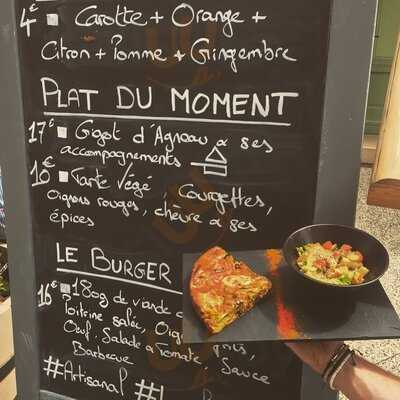 4€ Carotte + Orange +
Citron + Pomme + Gingembre
PLAT DU MOMENT
17€ Gigot d'Agneau & ses
accompagnements
10€ Tarte Végé Courgettes,
Oignons rouges, chèvre & ses
épices
LE BURGER
16€ 180g de viande
Poitrine salée,
Oeuf, Salade Tomate, Sauce
Barbecue
#Artisanal